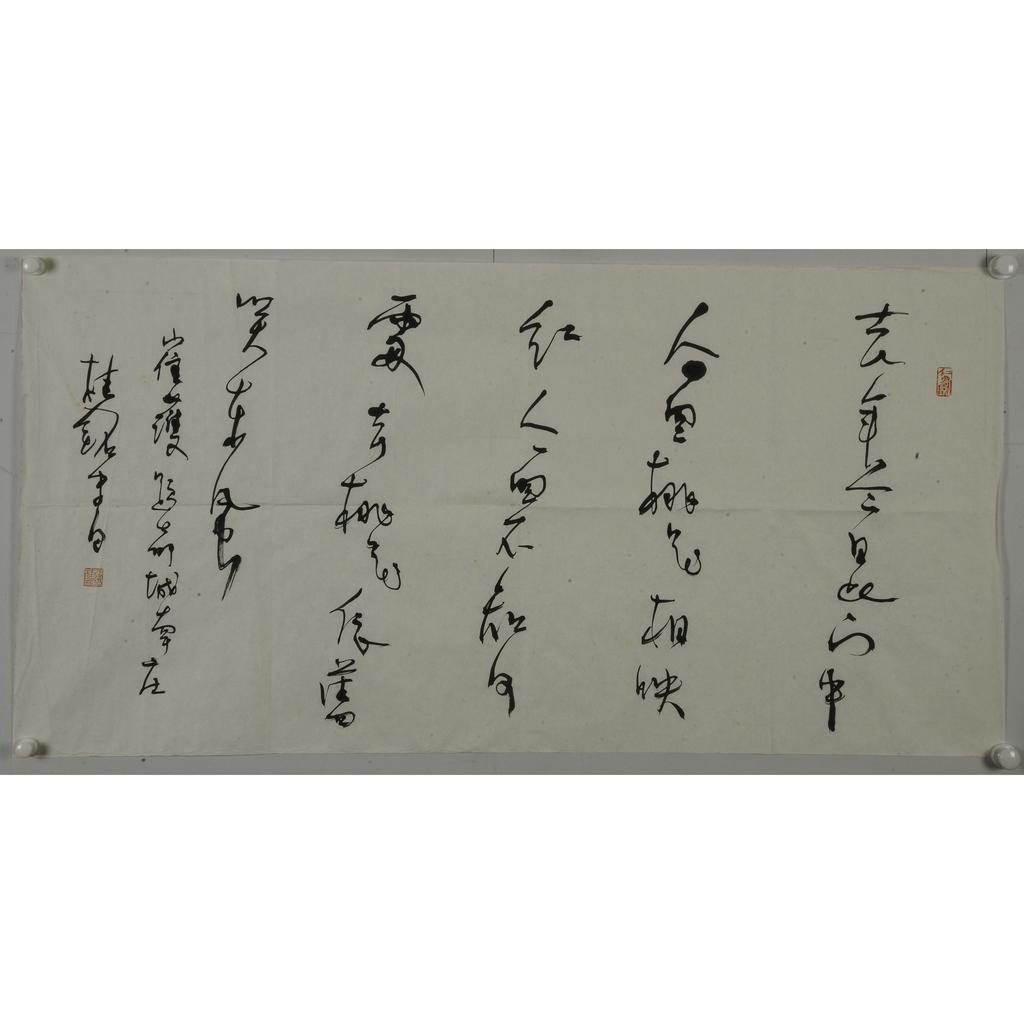 去年今日此门中
人面桃花相映
红人面不知何
处去桃花依旧
笑东风
崔护题都城南庄
桂铭书